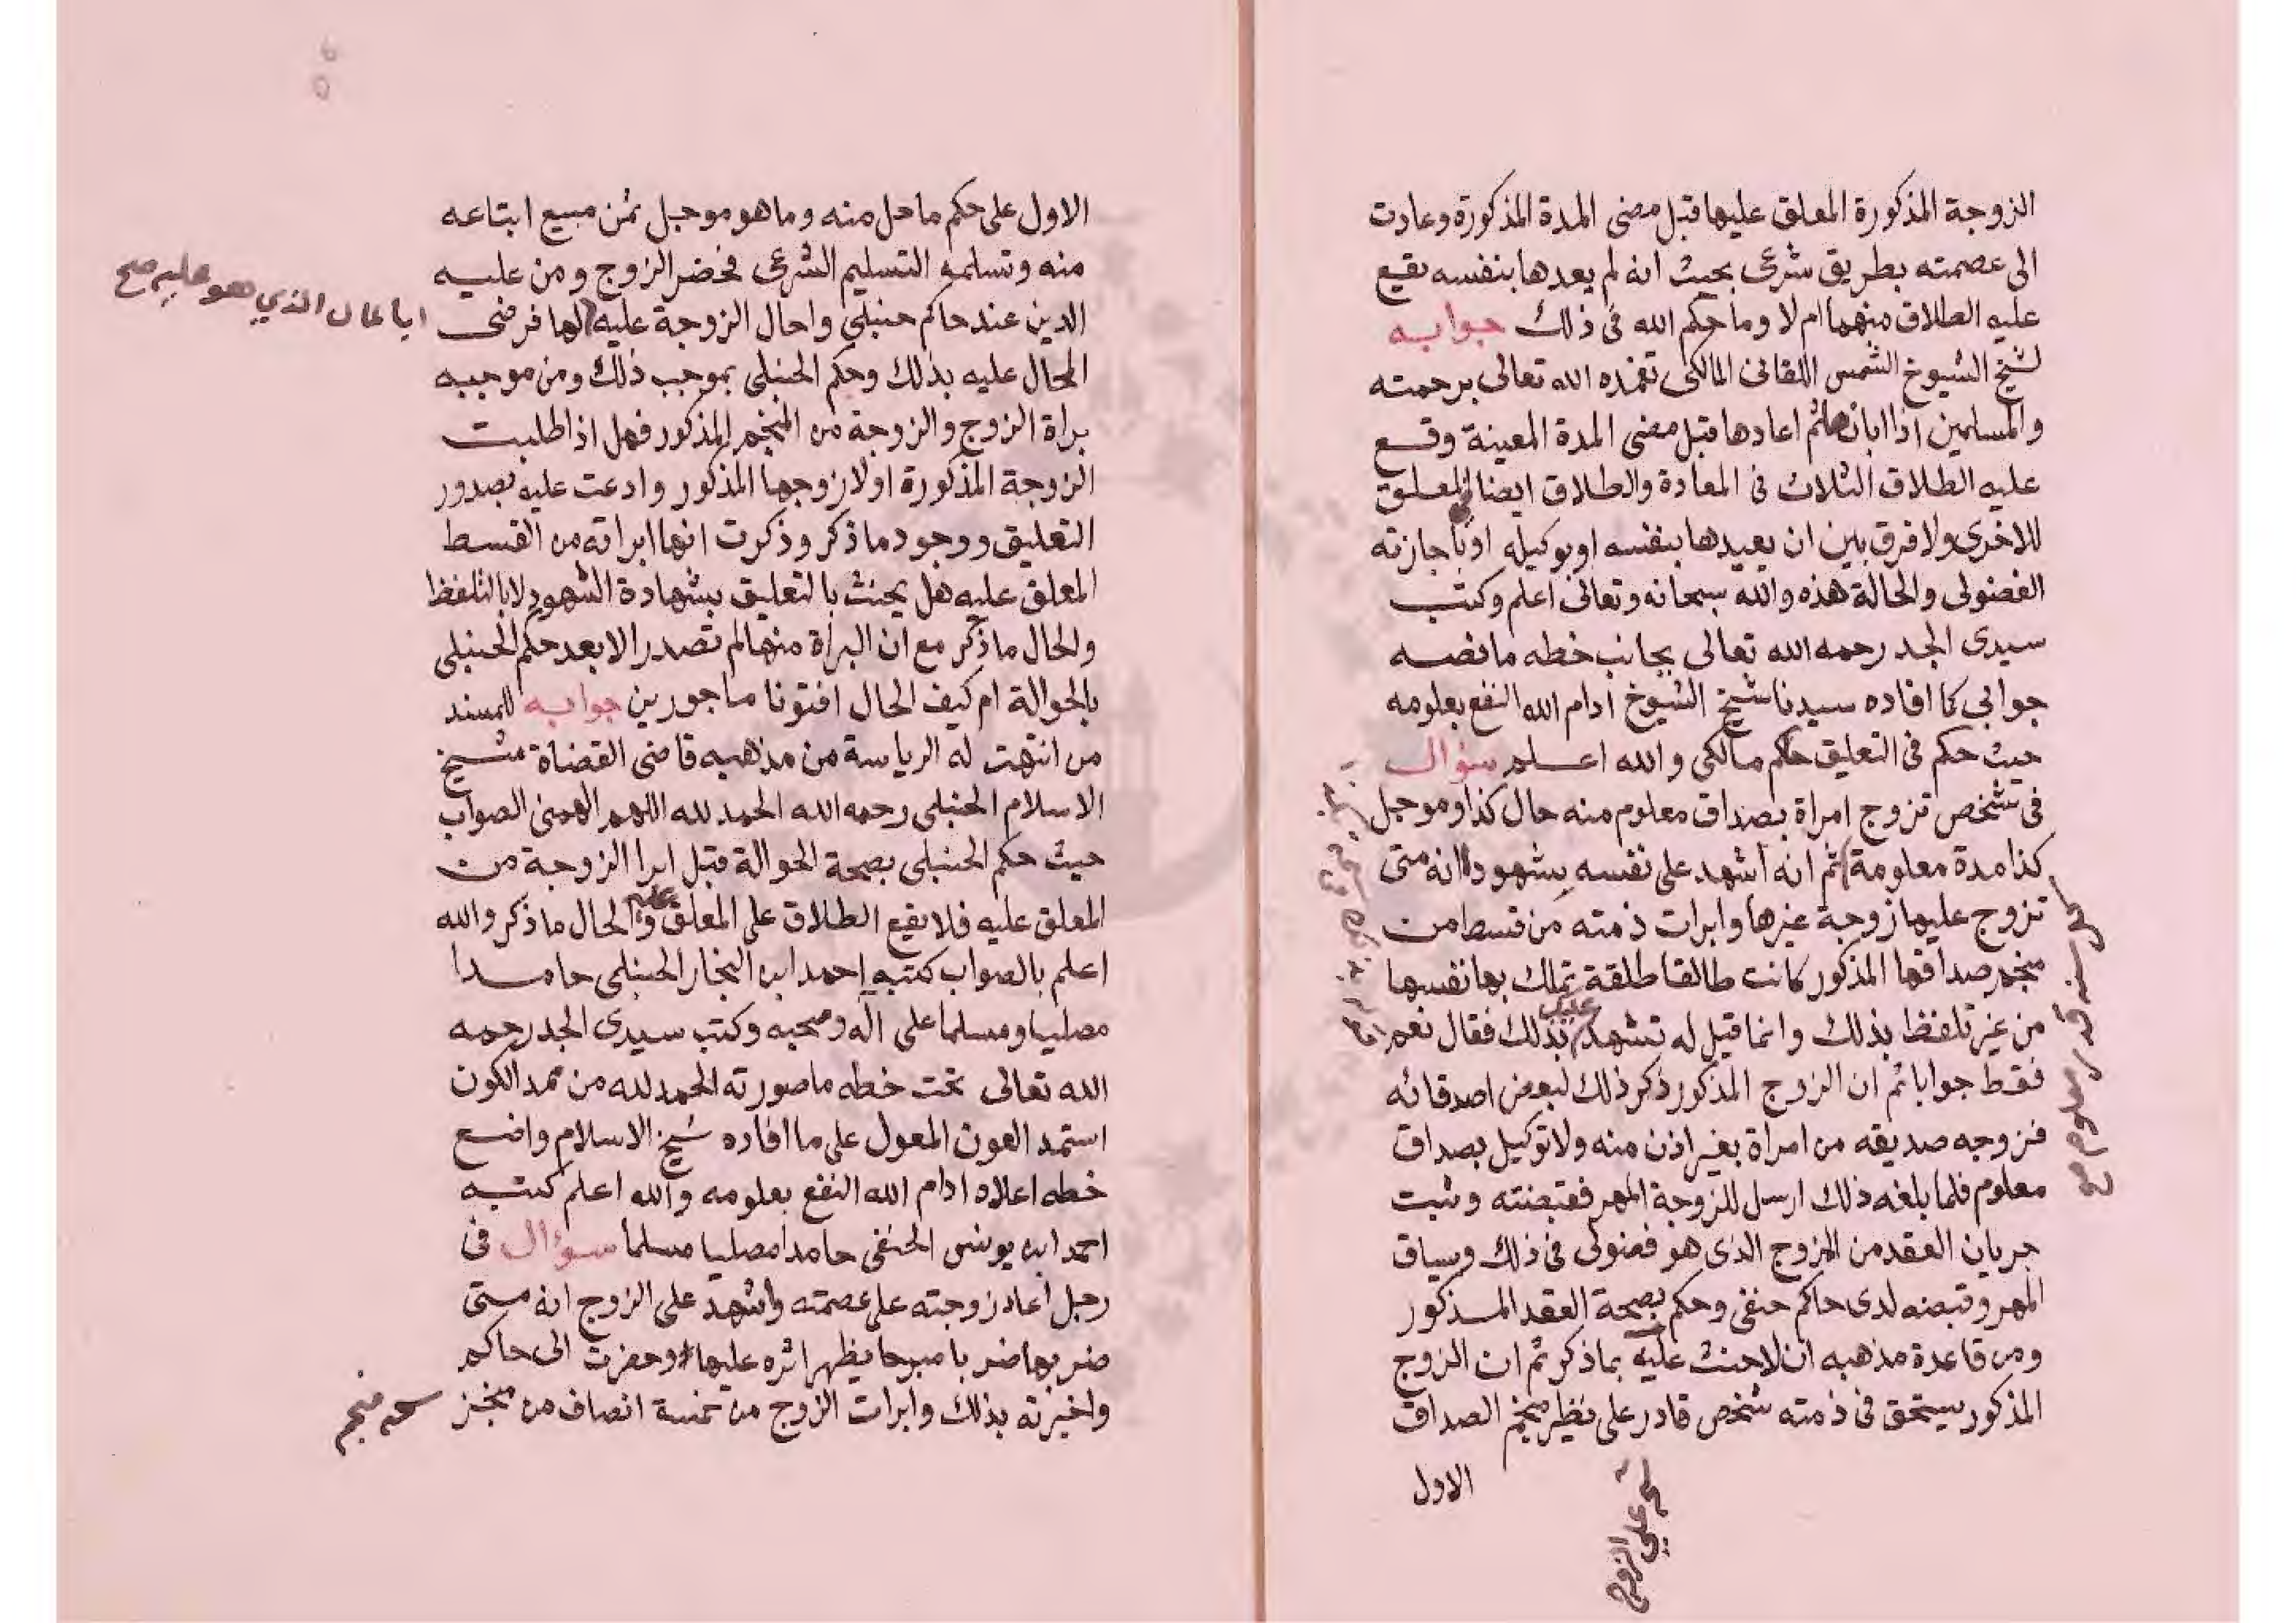 الزوجة المذكورة المعلق عليها قبل مضى المدة المذكورة وعادت
الى عصمته بطريق شرعى بحيث انه لم يعدها بنفسه يقيع
عليه الطلاق منهما ام لا وما حكم الله فى ذلك جوابه
لشيخ الشيوخ الشمس اللقانى المالكى تغمده الله تعالى برحمته
والمسلمين اذا ابانها ثم اعادها قبل مضى المدة المعينة وقع
عليه الطلاق الثلاث فى المعادة والطلاق ايضا فى المعلق
للاخرى ولا فرق بين ان يعيدها بنفسه او بوكيله او باجازته
الفضولى والحالة هذه والله سبحانه وتعالى اعلم وكتب
سيدى الجد رحمه الله تعالى بجانب خطه ما نصه
جوابى كما افاده سيدنا شيخ الشيوخ ادام الله النفع بعلومه
حيث حكم فى التعليق حاكم مالكى والله اعلم سؤال
فى شخص تزوج امراة بصداق معلوم منه حال كذا وموجل
كذا مدة معلومة ثم انه اشهد على نفسه بشهود انه متى
تزوج عليها زوجة غيرها وابرات ذمته من قسط من
منجم صداقها المذكور كانت طالقا طلقة تملك بها نفسها
من غير تلفظ بذلك وانما قيل له تشهد عليك بذلك فقال نعم
فقط جوابا ثم ان الزوج المذكور ذكر ذلك لبعض اصدقائه
فزوجه صديقه من امراة بغير اذن منه ولا توكيل بصداق
معلوم فلما بلغه ذلك ارسل للزوجة المهر فقبضته وثبت
جريان العقد من المزوج الذى هو فضولى فى ذلك وسياق
المهر وقبضه لدى حاكم حنفى وحكم بصحة العقد المذكور
ومن قاعدة مذهبه ان لا حنث عليه بما ذكر ثم ان الزوج
المذكور يستحق فى ذمته شخص قادر على نظير منجم الصداق
الاول
على الزوج
معلوم صح
الاول على حكم ما حل منه وما هو موجل ثمن مبيع ابتاعه
منه وتسلمه التسليم الشرعى فحضر الزوج ومن عليه
الدين عند حاكم حنبلى واحال الزوجة عليه لها فرضى
ايا عال الذي هو عليه صح
المحال عليه بذلك وحكم الحنبلى بموجب ذلك ومن موجبه
براة الزوج والزوجة من المنجم المذكور فهل اذا طلبت
الزوجة المذكورة اولا زوجها المذكور وادعت عليه بصدور
التعليق ووجود ما ذكر وذكرت انها ابراته من القسط
المعلق عليه هل يحنث بالتعليق بشهادة الشهود لا بالتلفظ
والحال ما ذكر مع ان البراة منها لم تصدر الا بعد حكم الحنبلى
بالحوالة ام كيف الحال افتونا ماجورين جوابه للمسند
من انتهت له الرياسة من مذهبه قاضى القضاة شيخ
الاسلام الحنبلى رحمه الله الحمد لله اللهم الهمنى الصواب
حيث حكم الحنبلى بصحة الحوالة قبل ابرا الزوجة من
المعلق عليه فلا يقيع الطلاق على المعلق عليه والحال ما ذكر والله
اعلم بالصواب كتبه احمد ابن النجار الحنبلى حامدا
مصليا ومسلما على اله وصحبه وكتب سيدى الجد رحمه
الله تعالى تحت خطه ما صورته الحمد لله من ممد الكون
استمد العون المعول على ما افاده شيخ الاسلام واضع
خطه اعلاه ادام الله النفع بعلومه والله اعلم كتبه
احمد ابن يونس الحنفى حامدا مصليا مسلما سؤال فى
رجل اعاد زوجته على عصمته واشهد على الزوج انه متى
ضربها ضربا مبرحا يظهر اثره عليها وحضرت الى حاكم
واخبرته بذلك وابرات الزوج من خمسة انصاف من منجز
منجم